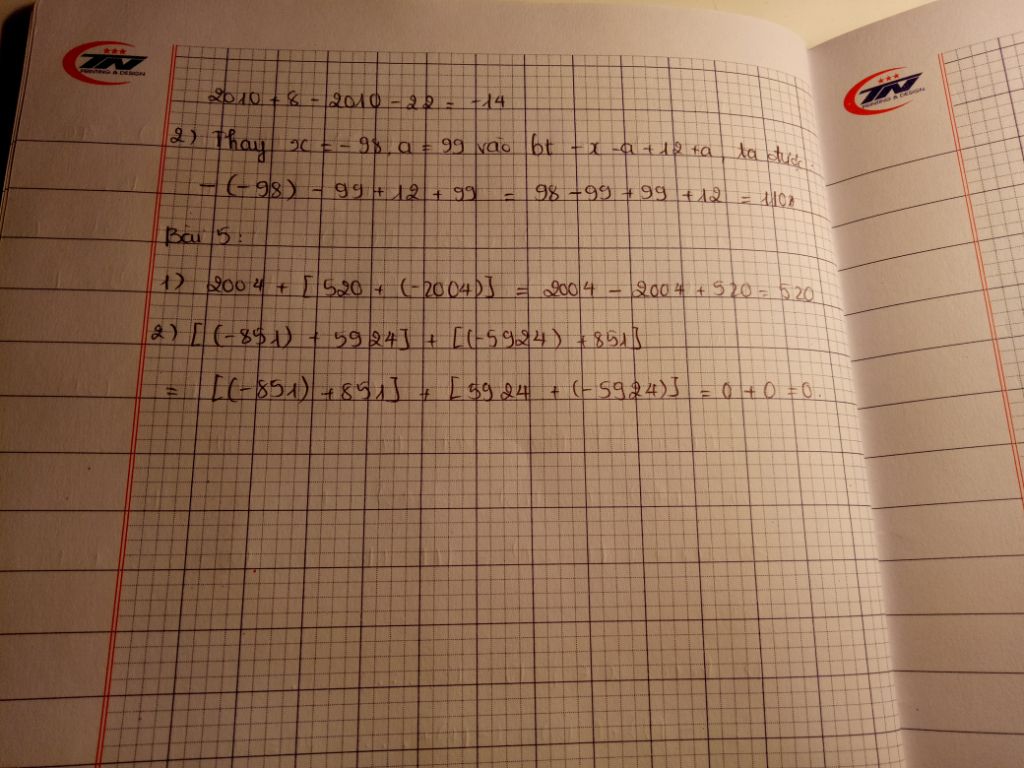 TN
PRINTING & DESIGN
2010 + 8 - 2010 - 22 = -14
2) Thay x = -98, a = 99 vào bt -x -a +12 +a, ta được
-(-98) - 99 + 12 + 99 = 98 - 99 + 99 + 12 = 110
Bài 5:
1) 2004 + [520 + (-2004)] = 2004 - 2004 + 520 = 520
2) [(-851) + 5924] + [(-5924) + 851]
= [(-851) + 851] + [5924 + (-5924)] = 0 + 0 = 0.
TN
PRINTING & DESIGN